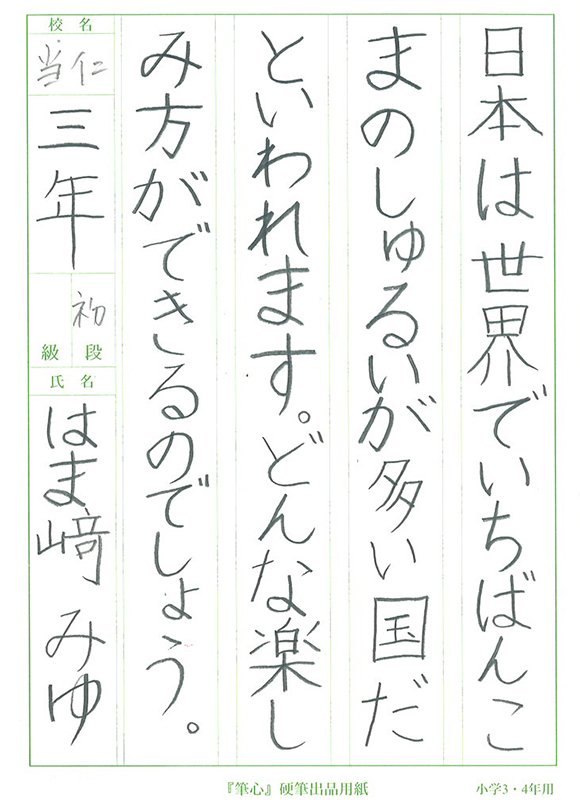 日本は世界でいちばんこ
まのしゅるいが多い国だ
といわれます。どんな楽し
み方ができるのでしょう。
校名
当仁
三年
初
級段
氏名
はま﨑みゆ
『筆心』硬筆出品用紙
小学3・4年用